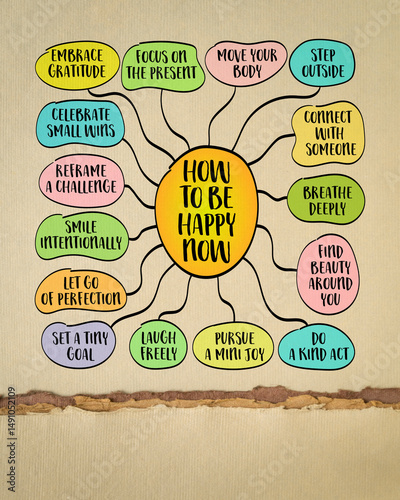 HOW
TO BE
HAPPY
NOW
EMBRACE
GRATITUDE
FOCUS ON
THE PRESENT
MOVE YOUR
BODY
STEP
OUTSIDE
CELEBRATE
SMALL WINS
CONNECT
WITH
SOMEONE
REFRAME
A CHALLENGE
BREATHE
DEEPLY
SMILE
INTENTIONALLY
FIND
BEAUTY
AROUND
YOU
LET GO
OF PERFECTION
SET A TINY
GOAL
LAUGH
FREELY
PURSUE
A MINI JOY
DO
A KIND ACT
Adobe Stock | #1491052109